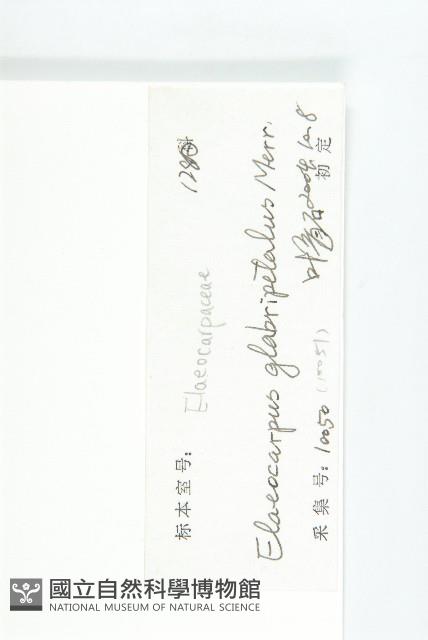 标本室号: Elaeocarpaceae 128 科
Elaeocarpus glabripetalus Merr.
采集号: 10050 (10051) 初定
國立自然科學博物館
NATIONAL MUSEUM OF NATURAL SCIENCE